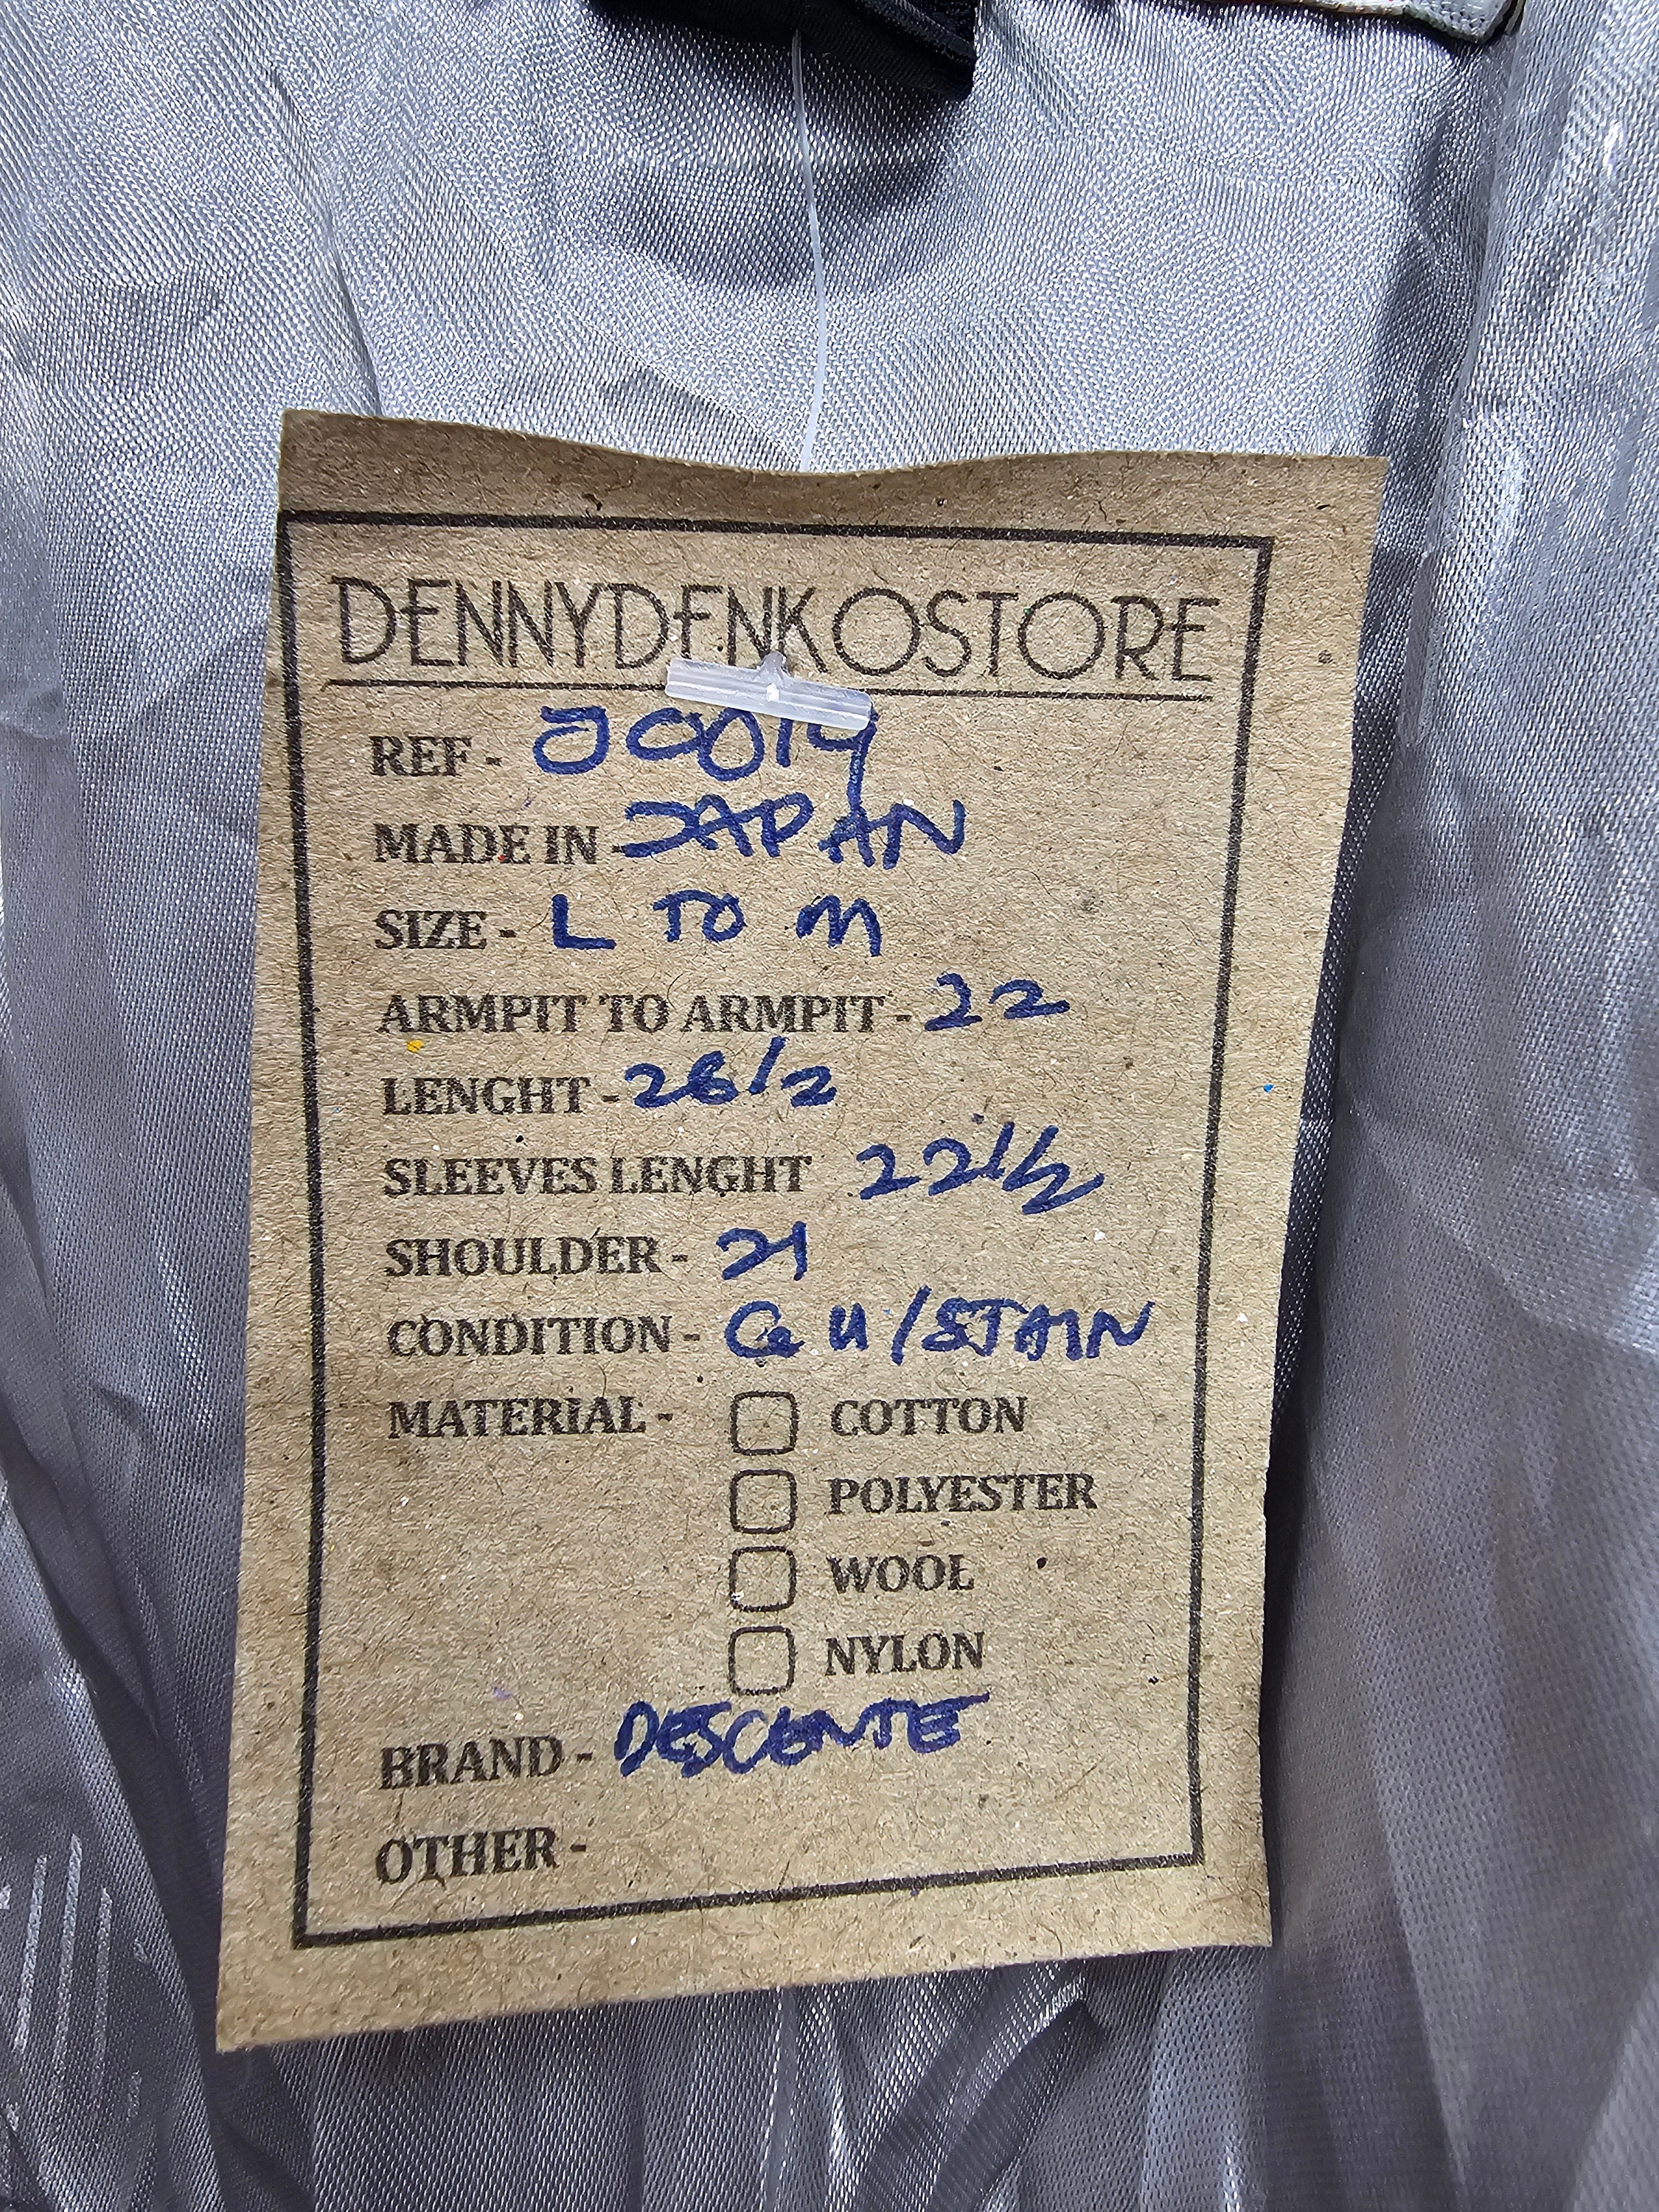 DENNYDENKOSTORE
REF - J0014
MADE IN - JAPAN
SIZE - L TO M
ARMPIT TO ARMPIT - 22
LENGHT - 26 1/2
SLEEVES LENGHT 22 1/2
SHOULDER - 21
CONDITION - GU/STAIN
MATERIAL - COTTON
POLYESTER
WOOL
NYLON
BRAND - DESCENTE
OTHER -